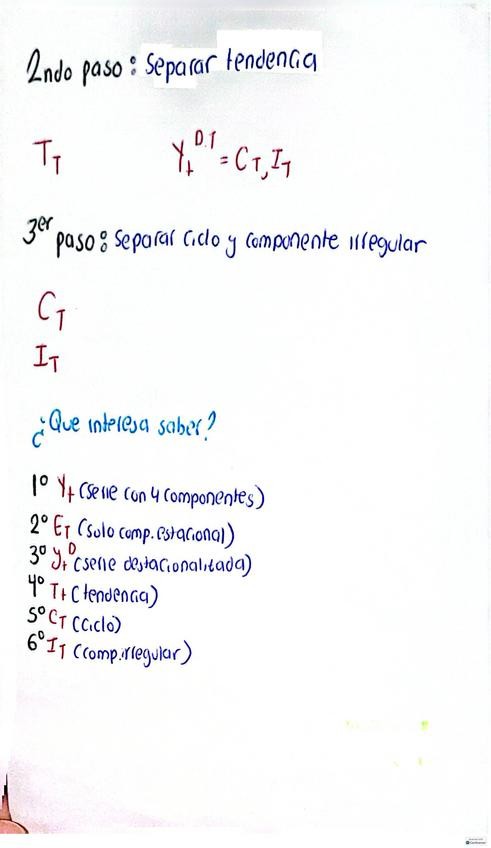 2ndo paso: Separar tendencia
T_T Y_t^D.T = C_T, I_T
3er paso: Separar ciclo y componente irregular
C_T
I_T
¿Que interesa saber?
1º Y_t (serie con 4 componentes)
2º E_T (solo comp. estacional)
3º y_t^D (serie destacionalizada)
4º T_t (tendencia)
5º C_T (ciclo)
6º I_T (comp. irregular)